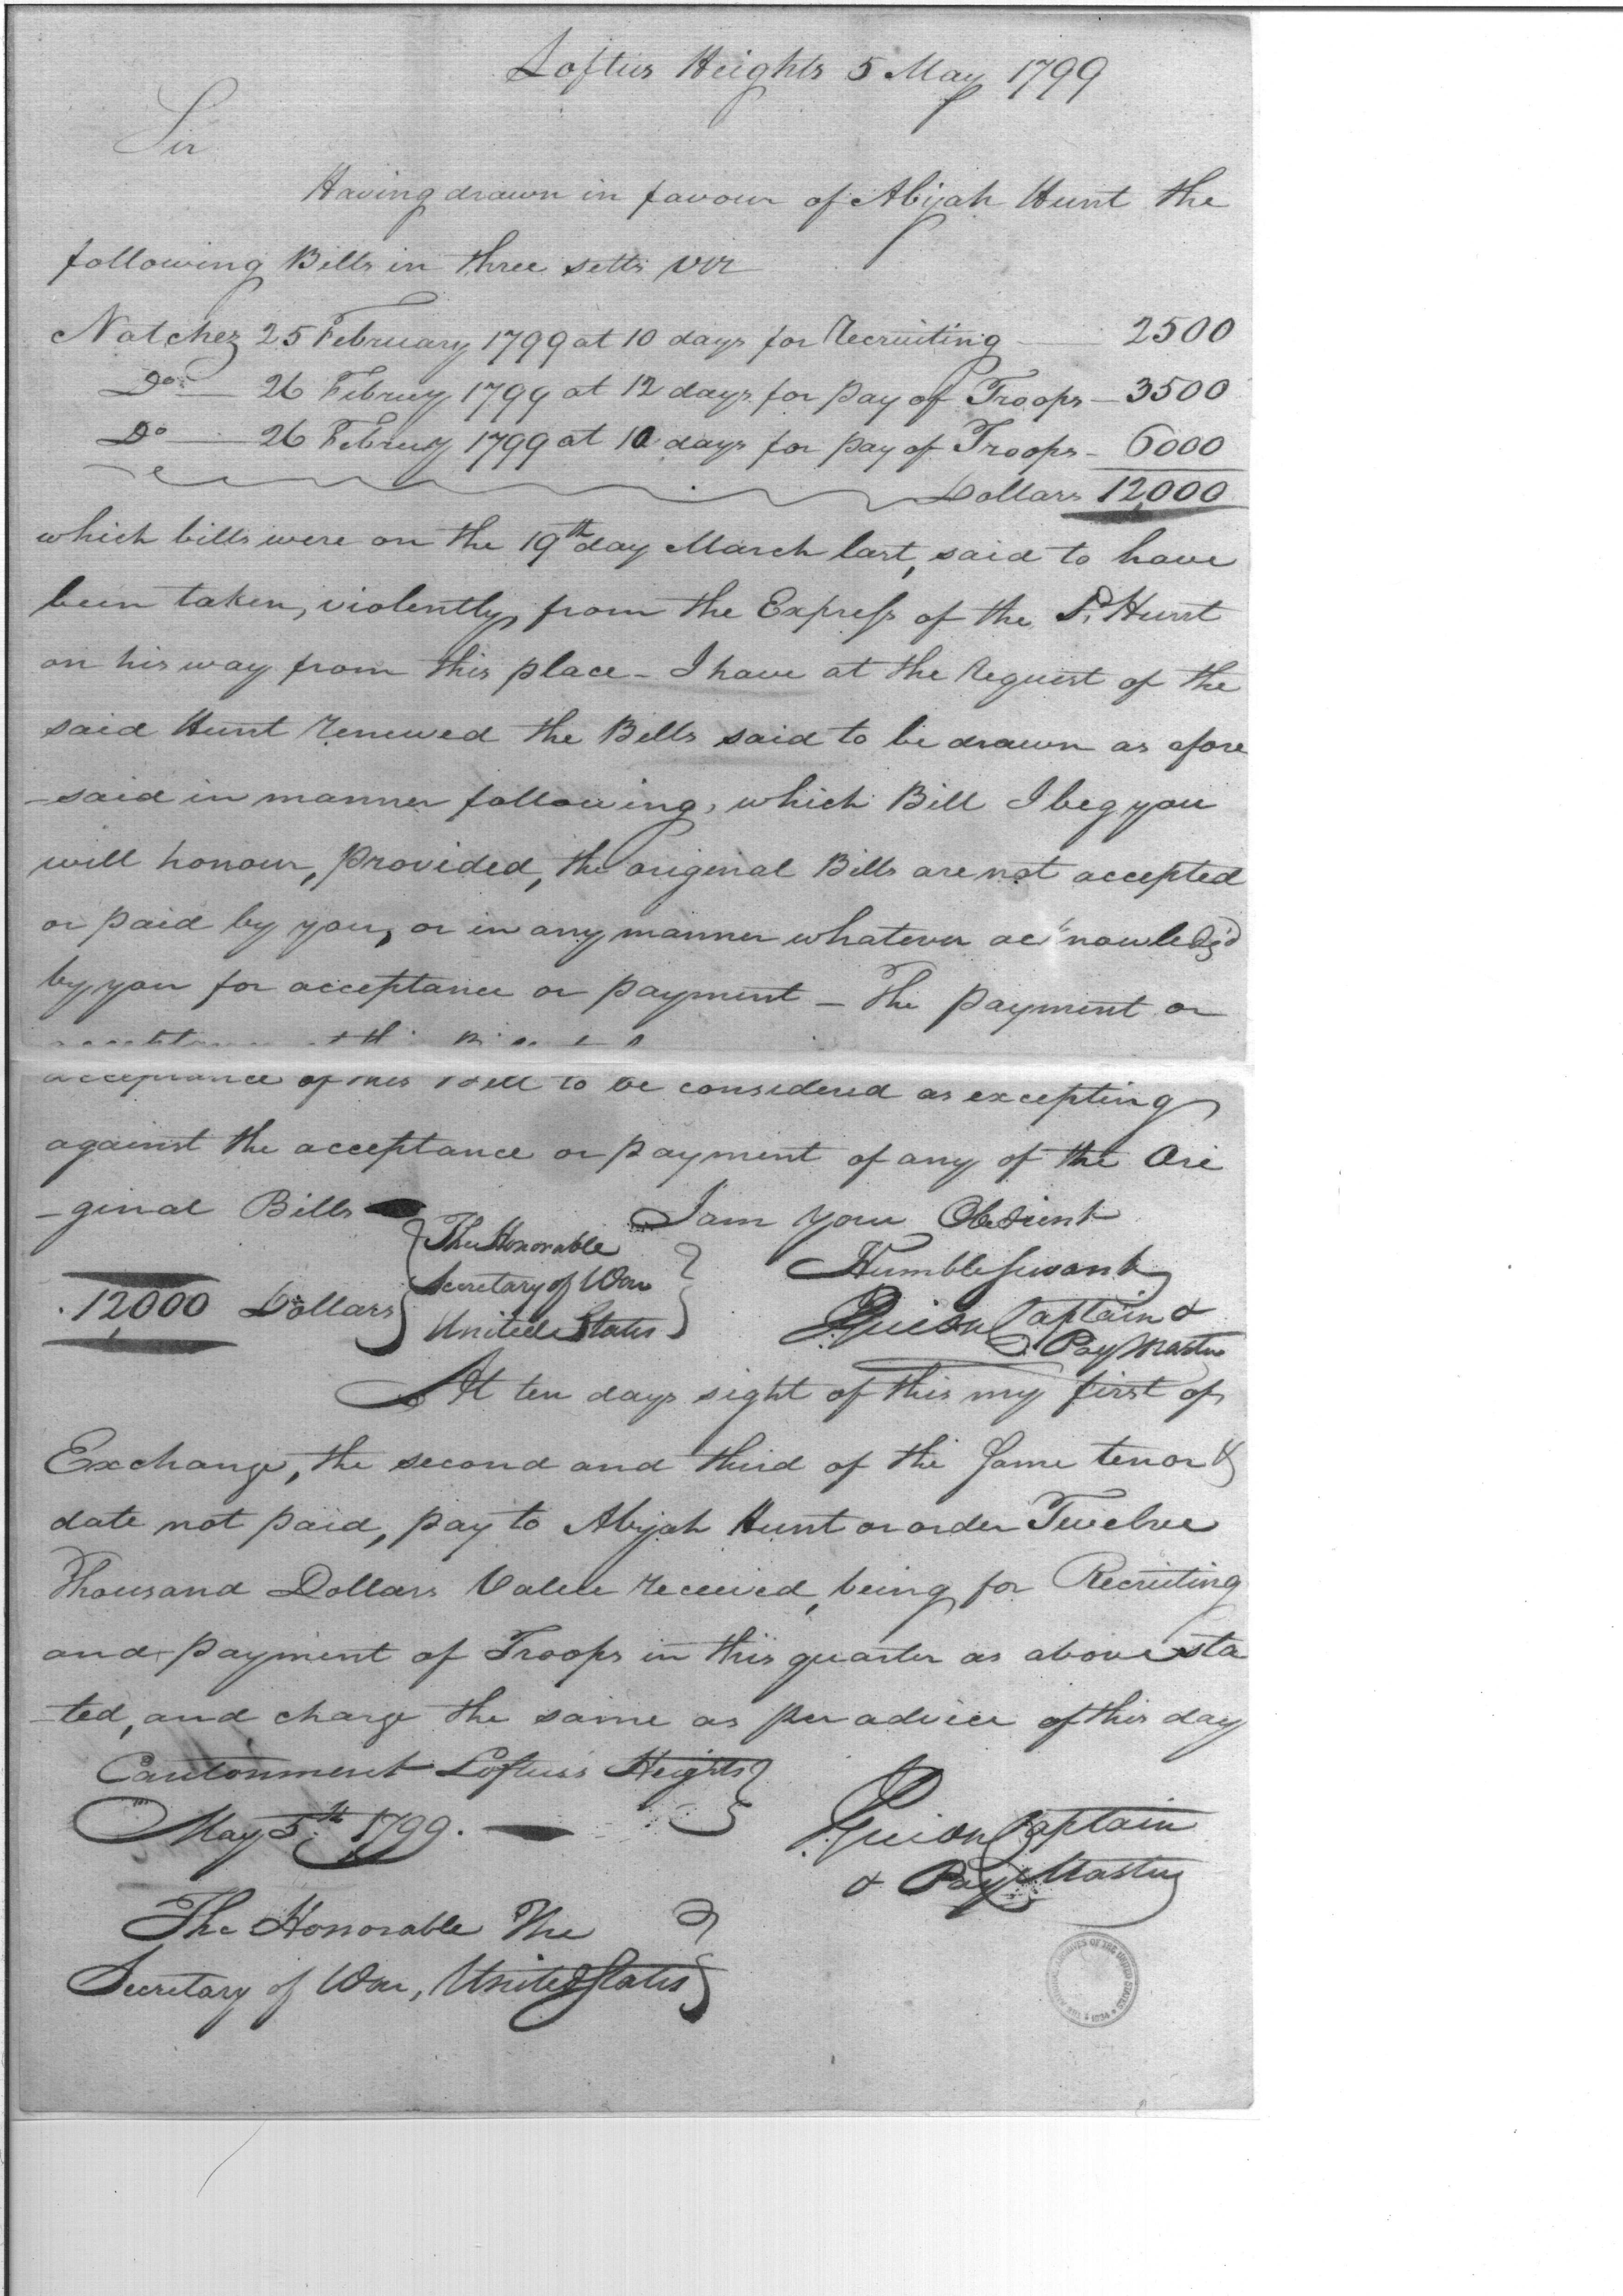 Loftus Heights 5 May 1799
Sir
Having drawn in favour of Abijah Hunt the
following Bills in three setts viz
Natchez 25 February 1799 at 10 days for Recruiting — 2500
Do — 26 Februy 1799 at 12 days for pay of Troops — 3500
Do — 26 Februy 1799 at 10 days for pay of Troops — 6000
Dollars 12,000
which bills were on the 19th day March last, said to have
been taken, violently, from the Express of the Sd. Hunt
on his way from this place - I have at the Request of the
said Hunt renewed the Bills said to be drawn as afore
-said in manner following, which Bill I beg you
will honour, provided, the original Bills are not accepted
or paid by you, or in any manner whatever acknowledg'd
by you for acceptance or payment — The payment or
acceptance of this Bill to be considered as excepting
against the acceptance or payment of any of the Ori
-ginal Bills
I am your Obedient
Humble Servant
Guion Captain &
Pay Master
12,000 Dollars
The Honorable
Secretary of War
United States
At ten days sight of this my first of
Exchange, the second and third of the same tenor &
date not paid, pay to Abijah Hunt or order Twelve
Thousand Dollars Value received, being for Recruiting
and payment of Troops in this quarter as above sta
-ted, and charge the same as per advice of this day
Cantonment Loftus's Heights
May 5th 1799.
Guion Captain
& Pay Master
The Honorable The
Secretary of War, United States